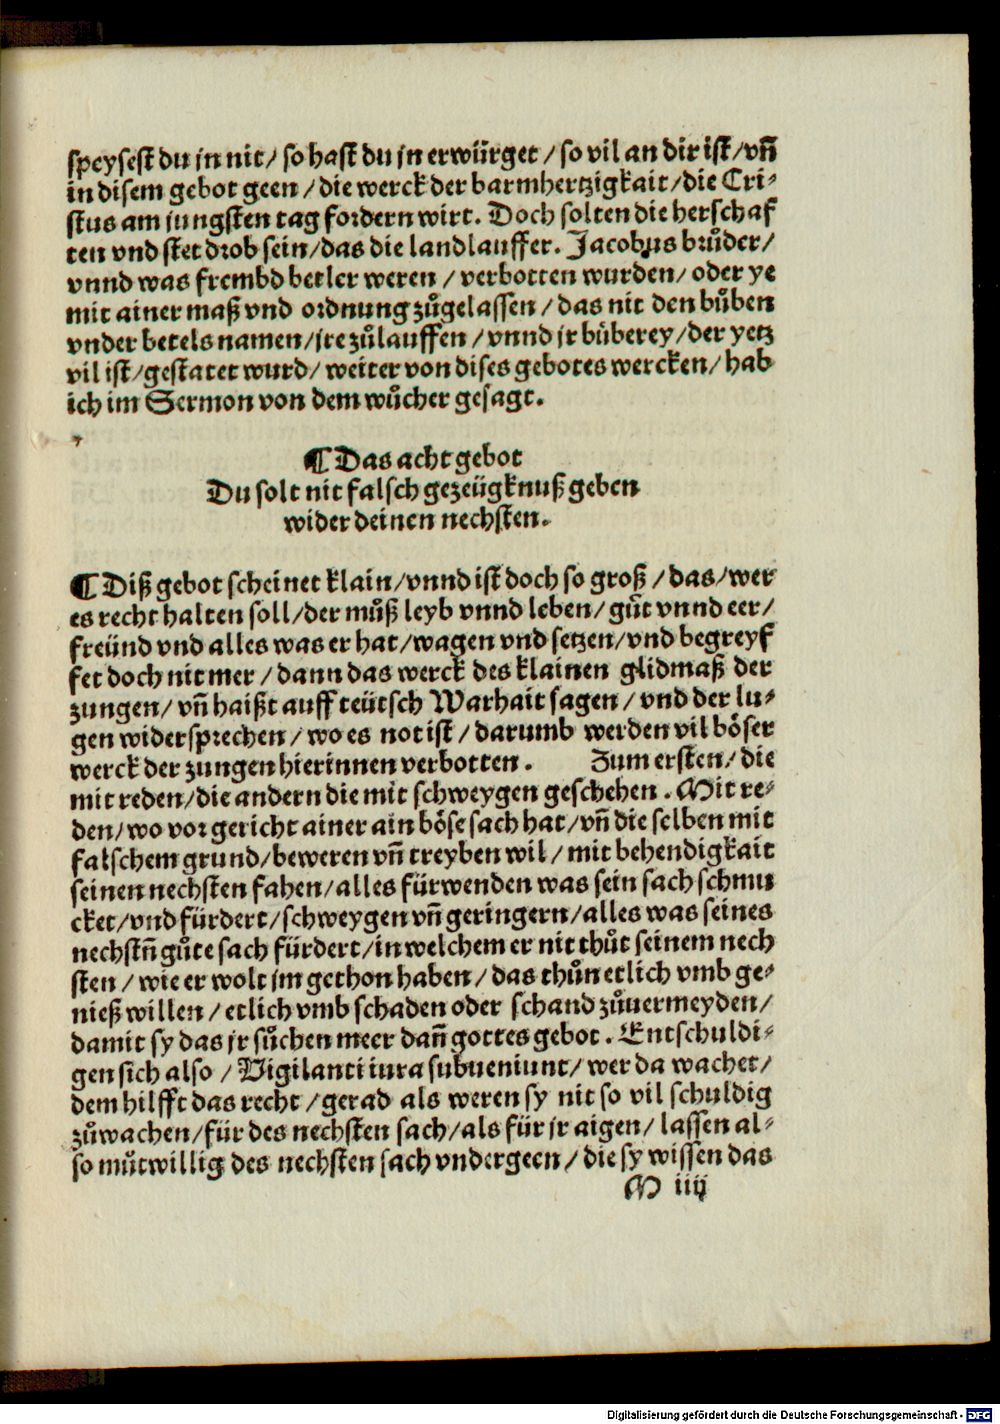 speysest du jn nit / so hast du jn erwürget / so vil an dir ist / vñ
in disem gebot geen / die werck der barmhertzigkait / die Cri⸗
stus am jungsten tag fordern wirt. Doch solten die herschaf
ten vnd stet drob sein / das die landlauffer. Jacobus brůder /
vnnd was frembd betler weren / verbotten wurden / oder ye
mit ainer maß vnd ordnung zůgelassen / das nit den bůben
vnder betels namen / jre zůlauffen / vnnd jr büberey / der yetz
vil ist / gestatet wurd / weiter von dises gebotes wercken / hab
ich im Sermon von dem wůcher gesagt.
¶ Das acht gebot
Du solt nit falsch gezeügknuß geben
wider deinen nechsten.
¶ Diß gebot scheinet klain / vnnd ist doch so groß / das / wer
es recht halten soll / der můß leyb vnnd leben / gůt vnnd eer /
freünd vnd alles was er hat / wagen vnd setzen / vnd begreyf
fet doch nit mer / dann das werck des klainen glidmaß der
zungen / vñ haißt auff teütsch Warhait sagen / vnd der lu⸗
gen widersprechen / wo es not ist / darumb werden vil böser
werck der zungen hierinnen verbotten. Zum ersten / die
mit reden / die andern die mit schweygen geschehen. Mit re⸗
den / wo vor gericht ainer ain böse sach hat / vñ die selben mit
falschem grund / beweren vñ treyben wil / mit behendigkait
seinen nechsten fahen / alles fürwenden was sein sach schmu
cket / vnd fürdert / schweygen vñ geringern / alles was seines
nechstñ gůte sach fürdert / in welchem er nit thůt seinem nech
sten / wie er wolt jm gethon haben / das thůn etlich vmb ge⸗
nieß willen / etlich vmb schaden oder schand zůuermeyden /
damit sy das jr sůchen meer dañ gottes gebot. Entschuldi⸗
gen sich also / Vigilanti iura subueniunt / wer da wachet /
dem hilfft das recht / gerad als weren sy nit so vil schuldig
zůwachen / für des nechsten sach / als für jr aigen / lassen al⸗
so můtwillig des nechsten sach vndergeen / die sy wissen das
M iiij
Digitalisierung gefördert durch die Deutsche Forschungsgemeinschaft - DFG